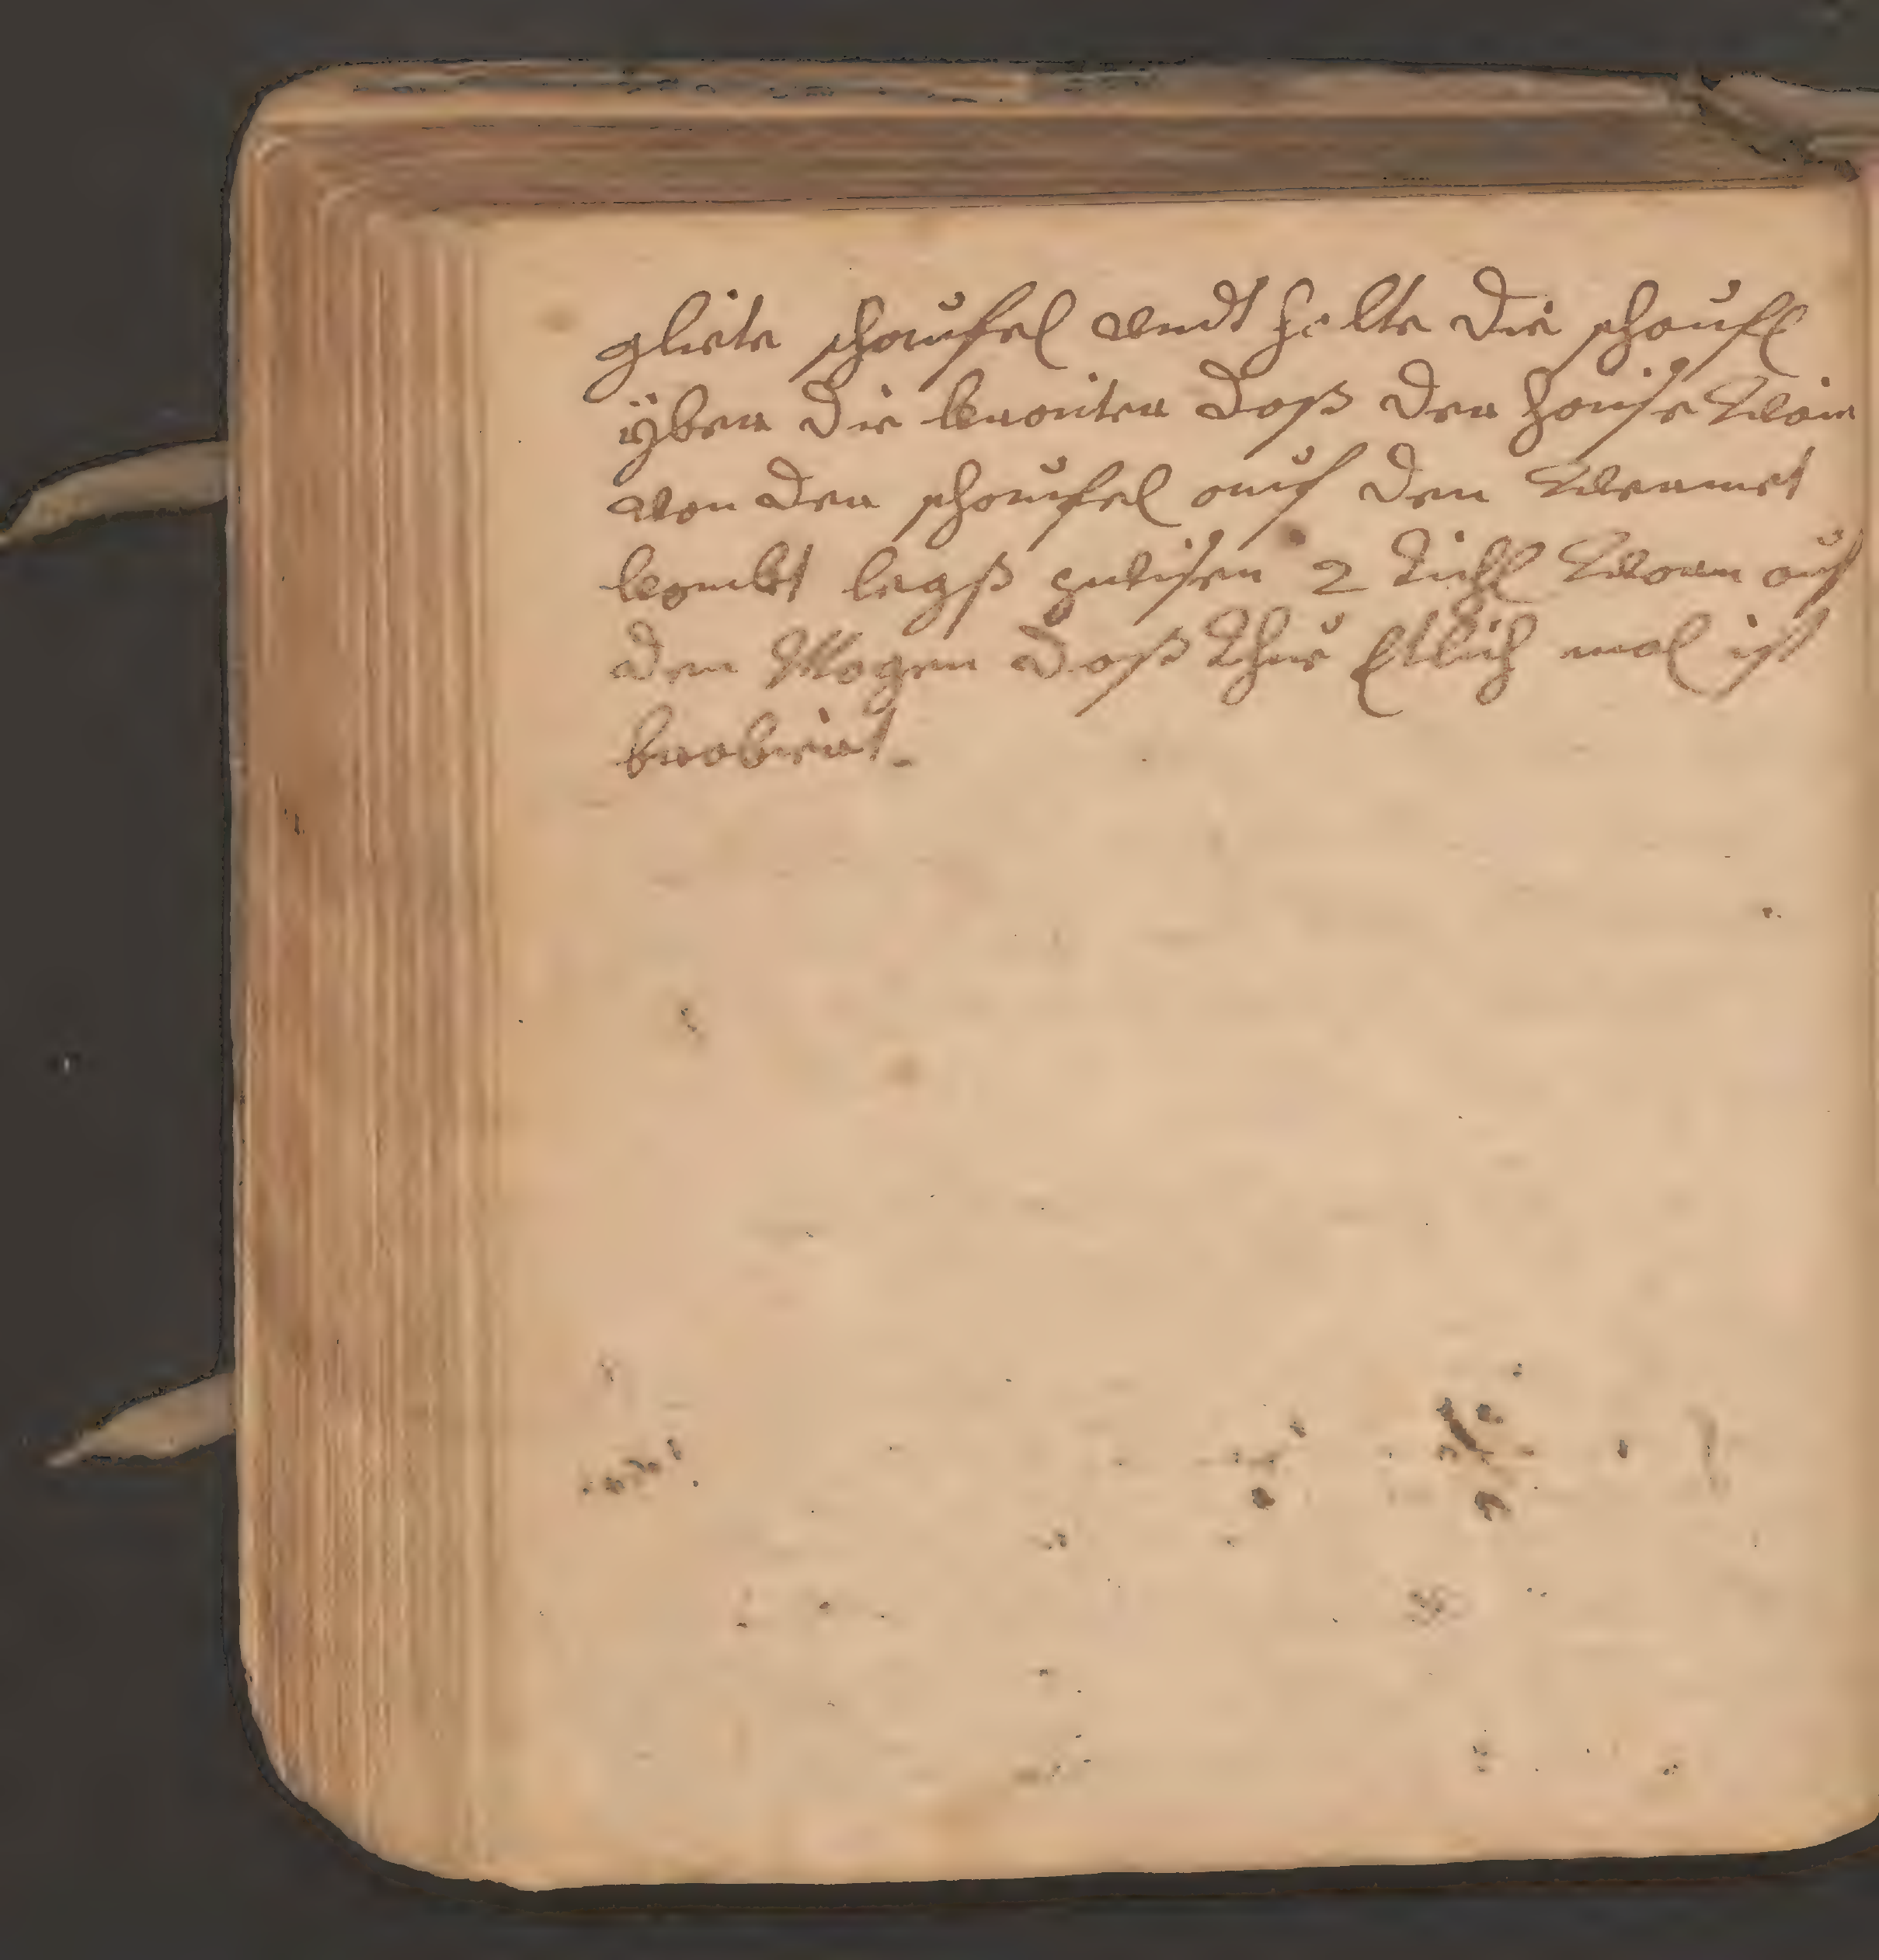 gliete schaufel vndt halte die schaufl
yber die kreiter daß der heise Wein
von der schaufel auf den Wermet
kombt legß zwischen 2 tichl Warm auf
den Magen daß thue Etlich mal ist
brobiert.